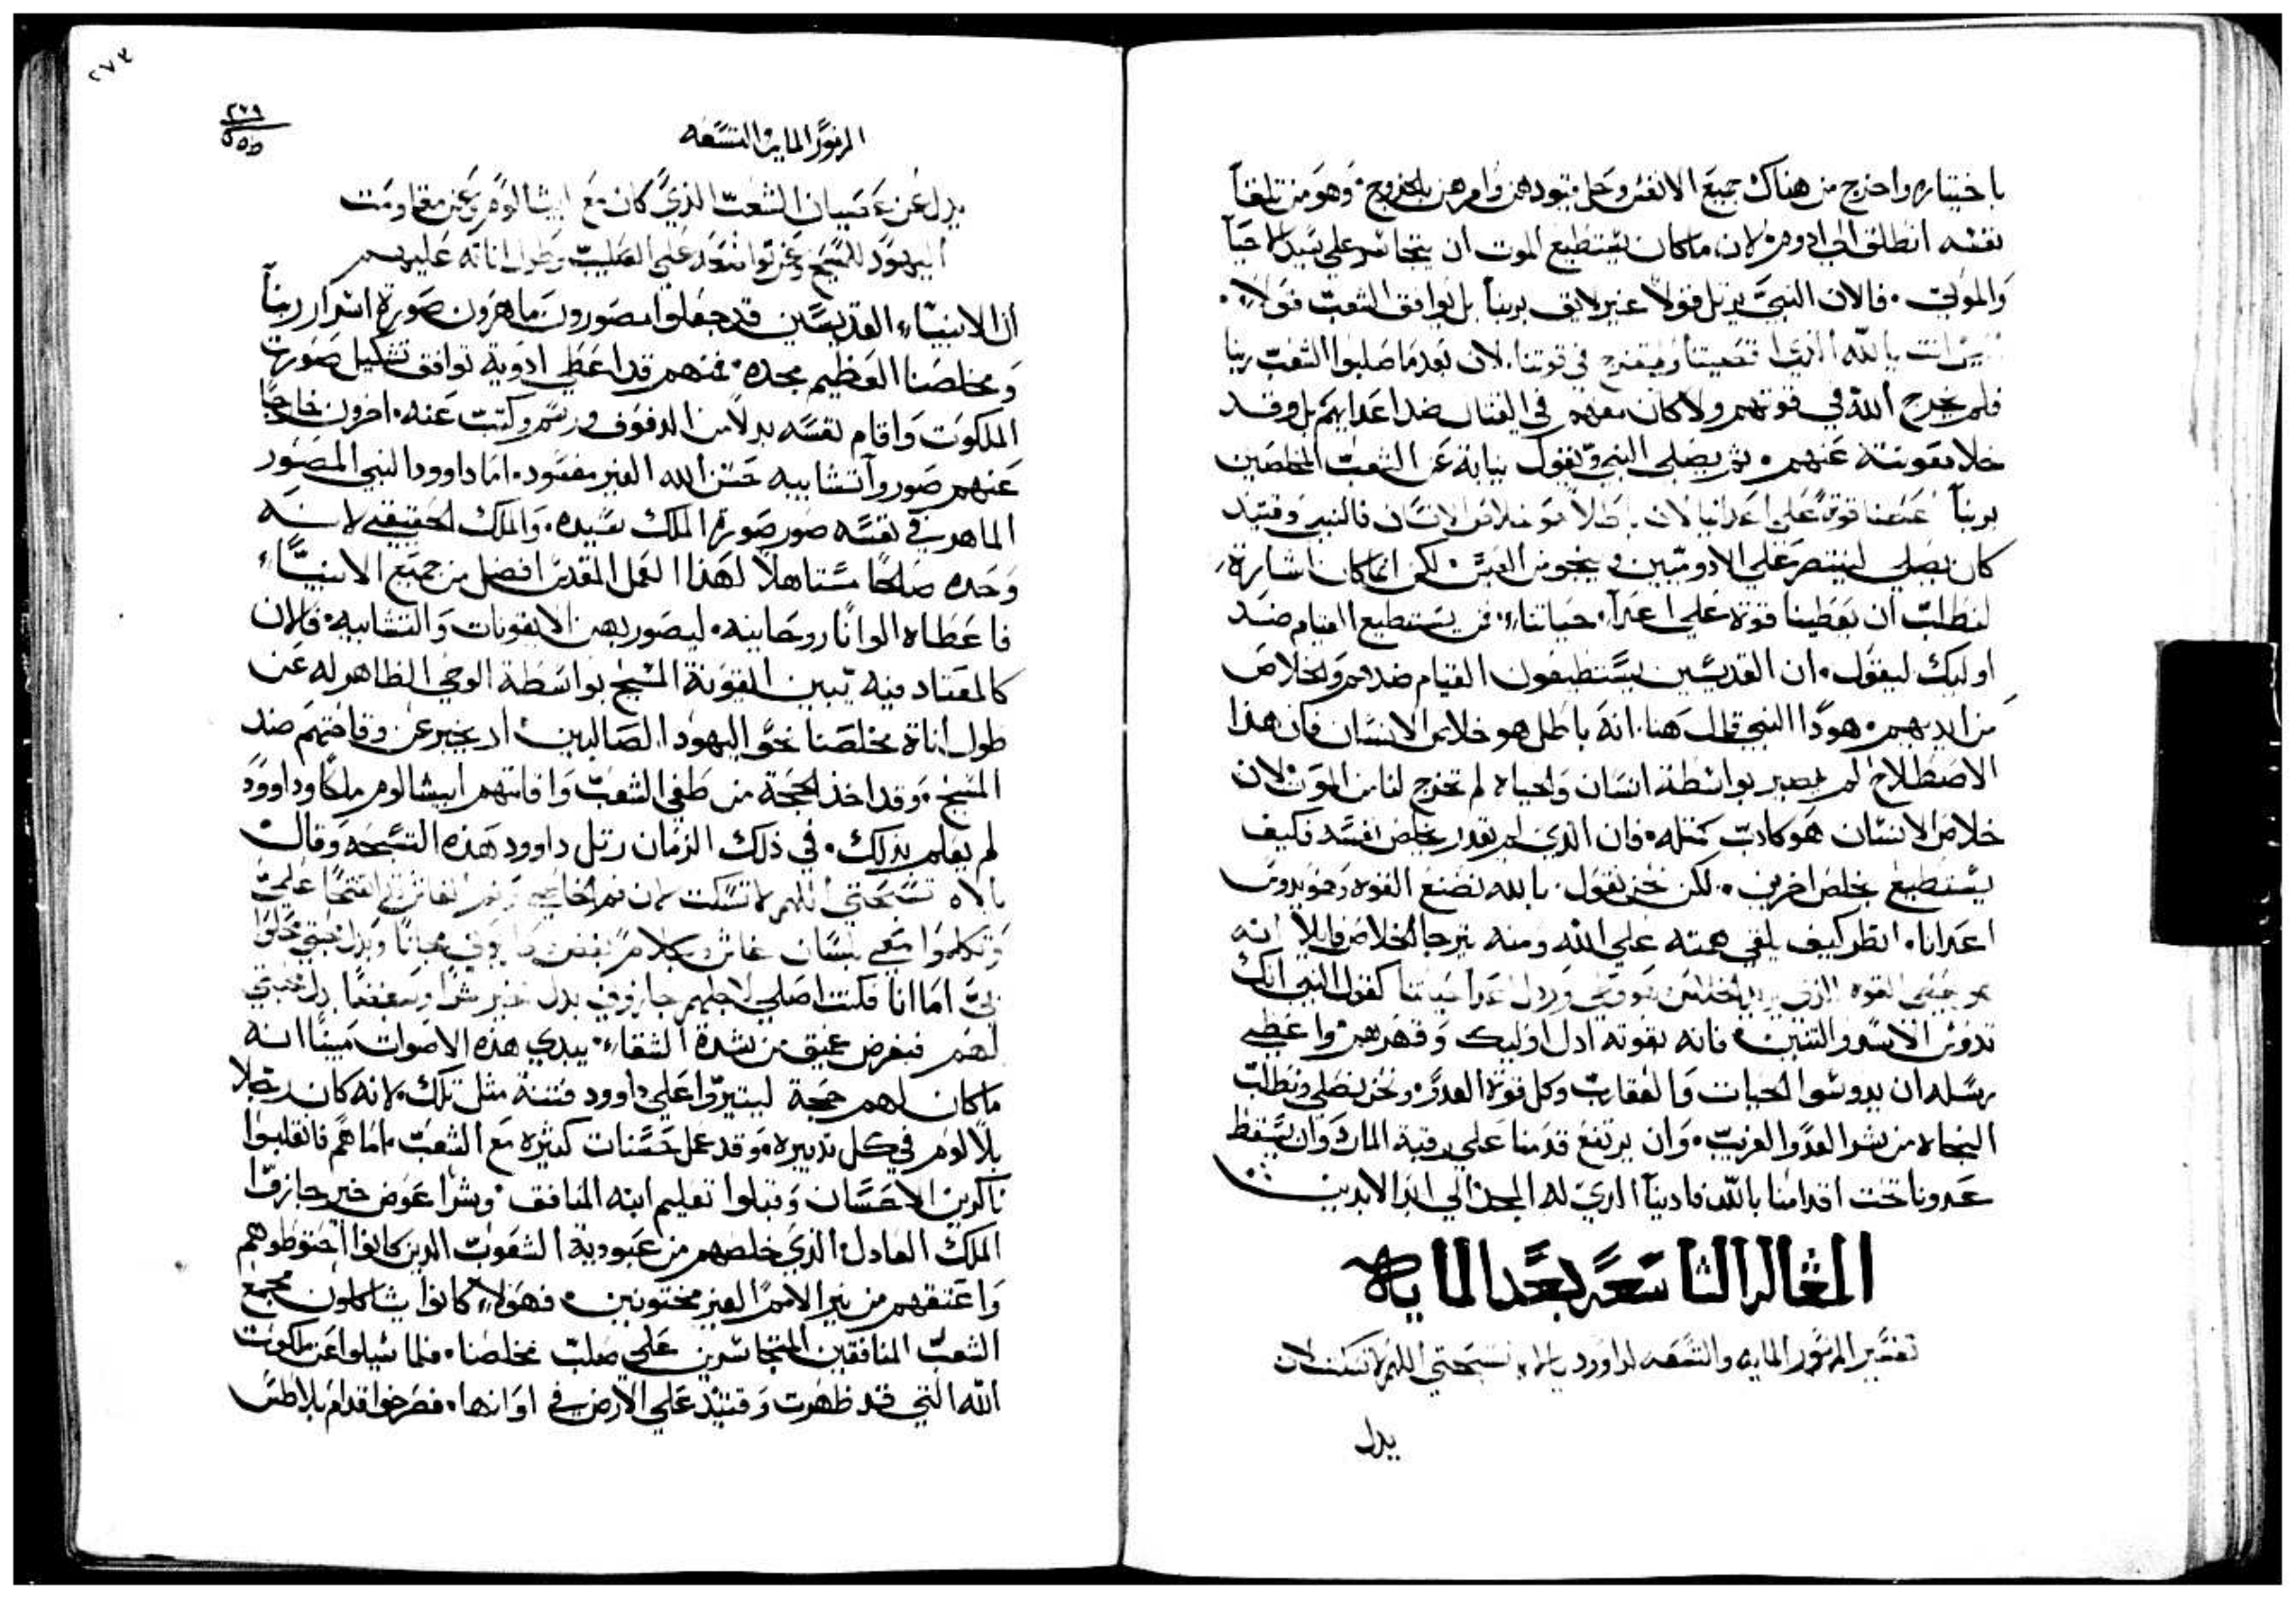 باختياره واخرج من هناك جميع الانفس وحل قيودهن وامرهن بالخروج٠ وهو من تلقآ
نفسه انطلق الي ادوم٠ لان ماكان يستطيع الموت ان يتجاسر علي سيد الاحيآ
والموتي٠ فالان النبي يرتل قولاً غير لايق بربنا بل يوافق الشعب قولاً٠
انت ياالله الذي اقصيتنا ولم تخرج في قوتنا٠ لان بعد ما صلبوا الشعب ربنا
فلم يخرج الله في قوتهم ولا كان معهم في القتال ضد اعدايهم بل وقد
خلا معونته عنهم٠ ثم يصلي النبي ويقول نيابة عن الشعب المخلصين
بربنا اعطنا قوة علي اعداينا لان باطلاً هو خلاص الانسان فالنبي وقتيد
كان يصلي لينتصر علي الادوميين وينجو من العيس لكن انما كان اشارة
لنطلب ان يعطينا قوة علي اعدآ حياتنا٠ فمن يستطيع القيام ضد
اوليك ليقول٠ ان القديسين يستطيعون القيام ضدهم والخلاص
من ايديهم٠ هوذا النبي قال هنا٠ انه باطل هو خلاص الانسان فكان هذا
الاصطلاح لم يصير بواسطة انسان والحياه لم تخرج لنا من الموت٠ لان
خلاص الانسان هو كادب كمثله٠ فان الذي لم يقدر يخلص نفسه فكيف
يستطيع يخلص اخرين٠ لكن نحن نقول٠ بالله نصنع القوه وهو يدوس
اعداناه انظر كيف يلقي همته علي الله ومنه يترجا الخلاص قايلاً انه
هو يعطي القوه الذي وردل اعدا حياتنا كقول النبي انك
تدوس الاسد والتنين٠ فانه بقوته ادل اوليك وقهرهم٠ واعطي
رسله ان يدوسوا الحيات والعقارب وكل قوة العدو٠ ونحن نصلي ونطلب
النجاه من شر العدو الغريب٠ وان يرتفع قدمنا علي رقبة المارد وان يسقط
عدونا تحت اقدامنا بالله فادينا الذي له المجد الي ابد الابدين
المقاله التاسعه بعد المايه
تفسير المزمور المايه والتسعه لداوود يااله تسبحتي اللهم لا تسكت لان
يدل
٢٧٣
المزمور المايه والتسعه
يدل عن عصيان الشعب الذي كان مع ابيشالوم وعن مقاومت
اليهود للمسيح وعن تواضعه علي الصليب وطول اناته عليهم
ان الانبيآء القديسين قد جعلوا مصورون ماهرون صورة اسرار ربنا
ومخلصنا العظيم مجده٠ فمنهم قد اعطي ادوية توافق تشكيل صورة
الملكوت واقام نفسه بدلاً من الدفوف ورسم وكتبت عنه٠ اخرون خارجا
عنهم صوروا تشابيه حسن الله الغير مفسود٠ اما داوود النبي المصور
الماهر في نفسه صور صورة الملك سيده٠ والملك الحقيقي لانه
وحده صالحاً مستاهلاً لهذا العمل المقدس افضل من جميع الانبيآء
فاعطاه الوانا روحانيه٠ ليصور بهن الايقونات والتشابيه٠ فالان
كالمعتاد فيه يبين ايقونة المسيح بواسطة الوحي الظاهر له عن
طول اناة مخلصنا نحو اليهود الصالبين٠ اد يخبر عن وقاحتهم ضد
المسيح٠ وقد اخذ الحجة من طغي الشعب واقامتهم ابيشالوم ملكا وداوود
لم يعلم بذلك٠ في ذلك الزمان رتل داوود هذه التسبحه وقال
يااله تسبحتي اللهم لا تسكت لان فم الخاطي وفم الغاش انفتحا علي
وتكلموا معي بلسان غاش وبكلام بغض حاربوني مجانا وبدل محبتي محلوا
بي اما انا فكنت اصلي لاجلهم جازوني بدل خير شرا وبغضا بدل محبتي
لهم فبغرض عميق من شدة الشقاء٠ يبدي هذه الاصوات مبيناً انه
ماكان لهم حجة ليتيروا علي داوود فتنة مثل تلك٠ لانه كان رجلا
بلا لوم في كل تدبيره٠ وقد عمل حسنات كثيره مع الشعب٠ اما هم فانقلبوا
ناكرين الاحسان وقبلوا تعليم ابنه المنافق٠ وشراً عوض خير جازوا
الملك العادل الذي خلصهم من عبودية الشعوب الدين كانوا احتوطوهم
واعتقهم من نير الامم الغير مختونين٠ فهولاء كانوا يشاكلون مجمع
الشعب المنافقين المتجاسرين علي صلب مخلصنا٠ فلما سيلوا عن ملكوت
الله التي قد ظهرت وقتيد علي الارض في اوانها٠ فصرخوا قدام بيلاطس